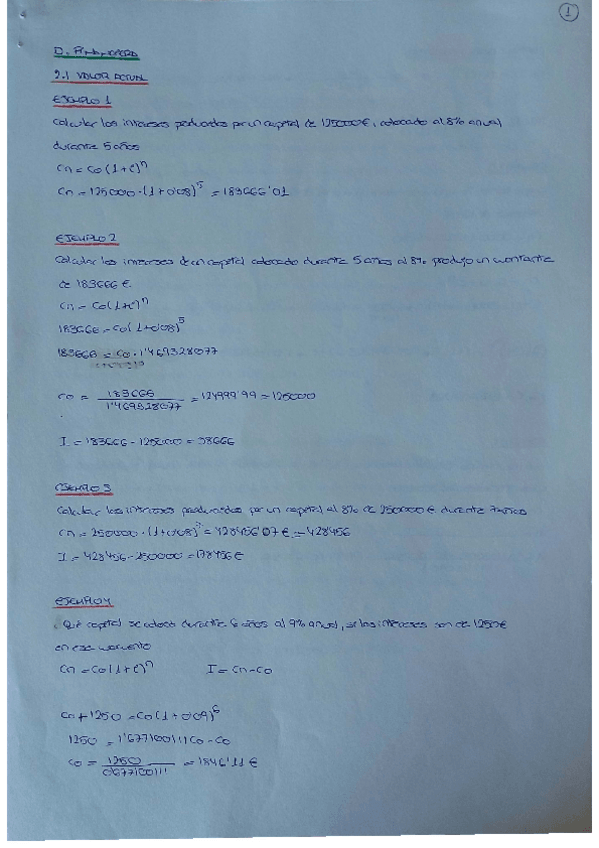 1
D. FINANCIERO
2.1 VALOR ACTUAL
EJEMPLO 1
Calcular los intereses producidos por un capital de 125000€, colocado al 8% anual
durante 5 años
Cn = Co(1+i)^n
Cn = 125000·(1+0'08)^5 = 183666'01
EJEMPLO 2
Calcular los intereses de un capital colocado durante 5 años al 8% produjo un montante
de 183666 €.
Cn = Co(1+i)^n
183666 = Co(1+0'08)^5
183666 = Co·1'469328077
Co = 183666 / 1'469328077 = 124999'99 = 125000
I = 183666 - 125000 = 58666
EJEMPLO 3
Calcular los intereses producidos por un capital al 8% de 250000 € durante 7 años
Cn = 250000·(1+0'08)^7 = 428456'07 € = 428456
I = 428456 - 250000 = 178456 €
EJEMPLO 4
Qué capital se coloca durante 6 años al 9% anual, si los intereses son de 1250€
en ese momento
Cn = Co(1+i)^n I = Cn - Co
Co + 1250 = Co(1+0'09)^6
1250 = 1'677100111 Co - Co
Co = 1250 / 0'677100111 = 1846'11 €